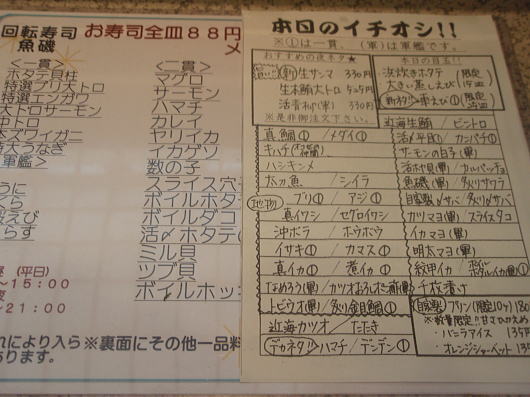 回転寿司
魚磯
お寿司全皿88円
メ
<二貫>
ホタテ貝柱
特選ブリ大トロ
特選エンガワ
大トロサーモン
中トロ
本ズワイガニ
軍艦>
うに
くら
らす
(平日)
~15:00
~21:00
<二貫>
マグロ
サーモン
ハマチ
カレイ
ヤリイカ
イカゲソ
数の子
スライス穴子
ボイルホタテ
ボイルダコ
活〆ホタテ(
ミル貝
ツブ貝
ボイルホッキ
れにより入ら
あります。
※裏面にその他一品料
本日のイチオシ!!
※①は一貫、(軍)は軍艦です。
おすすめの夜ネタ★
生サンマ 330円
生本鮪大トロ 525円
330円
※是非御注文下さい。
本日の目玉!!
浜炊きホタテ
大きい蒸しえび
(限定
真鯛①/メダイ①
キハダ
ハシキンメ
太刀魚/シイラ
(地物) ブリ①/アジ①
真イワシ/セグロイワシ
沖ボラ/ホウボウ
イサキ①/カマス①
真イカ①/煮イカ①
なめろう(軍)/カツオ
トビウオ(軍)/炙り金目鯛①
近海カツオ/たたき
(デカネタ) ハマチ/デンデン①
近海生鮪/ビントロ
活〆平目①/カンパチ①
サーモンの白子(軍)
活ホッ貝(軍)/カルパッチョ
魚磯(軍)/炙りサワラ
自家製〆サバ/炙り〆サバ
カリマヨ(軍)/スライスタコ
イカマヨ(軍)
明太マヨ(軍)
紋甲イカ/
千枚漬け
(自家製) プリン(限定10ヶ) 180
※数量限定!!甘さひかえめ
・バニラアイス 135円
・オレンジシャーベット 135